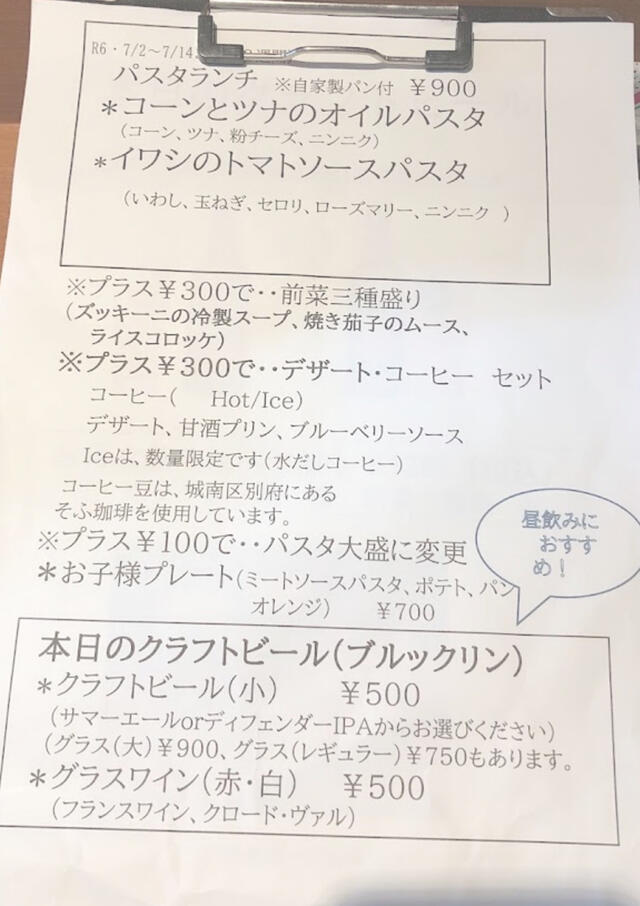 R6・7/2～7/14
パスタランチ ※自家製パン付 ￥900
＊コーンとツナのオイルパスタ
（コーン、ツナ、粉チーズ、ニンニク）
＊イワシのトマトソースパスタ
（いわし、玉ねぎ、セロリ、ローズマリー、ニンニク ）
※プラス￥300で‥前菜三種盛り
（ズッキーニの冷製スープ、焼き茄子のムース、
ライスコロッケ）
※プラス￥300で‥デザート・コーヒー セット
コーヒー（ Hot/Ice）
デザート、甘酒プリン、ブルーベリーソース
Iceは、数量限定です（水だしコーヒー）
コーヒー豆は、城南区別府にある
そふ珈琲を使用しています。
※プラス￥100で‥パスタ大盛に変更
＊お子様プレート（ミートソースパスタ、ポテト、パン
オレンジ） ￥700
昼飲みに
おすす
め！
本日のクラフトビール（ブルックリン）
＊クラフトビール（小） ￥500
（サマーエールorディフェンダーIPAからお選びください）
（グラス（大）￥900、グラス（レギュラー）￥750もあります。
＊グラスワイン（赤・白） ￥500
（フランスワイン、クロード・ヴァル）